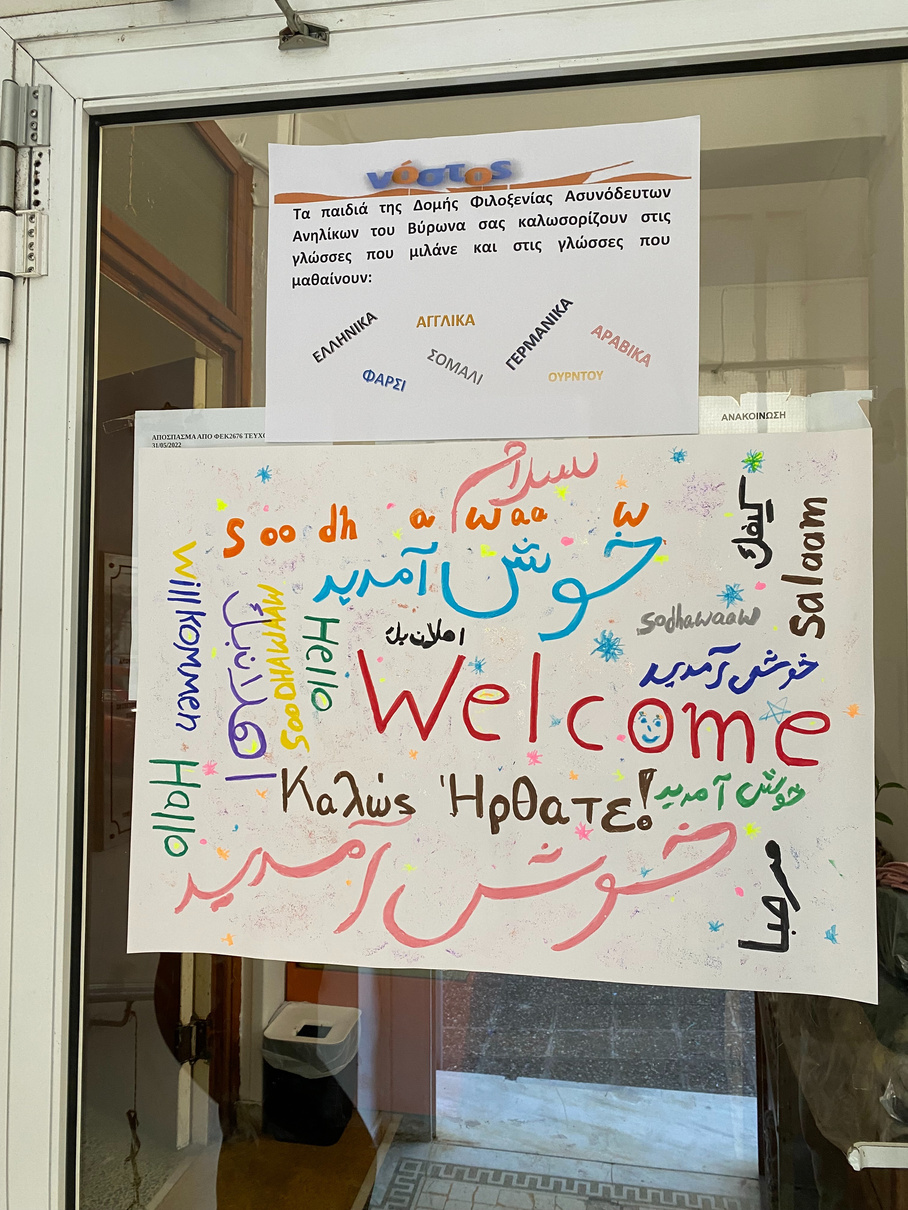 νόστος
Τα παιδιά της Δομής Φιλοξενίας Ασυνόδευτων
Ανηλίκων του Βύρωνα σας καλωσορίζουν στις
γλώσσες που μιλάνε και στις γλώσσες που
μαθαίνουν:
ΕΛΛΗΝΙΚΑ
ΑΓΓΛΙΚΑ
ΓΕΡΜΑΝΙΚΑ
ΑΡΑΒΙΚΑ
ΦΑΡΣΙ
ΣΟΜΑΛΙ
ΟΥΡΝΤΟΥ
ΑΝΑΚΟΙΝΩΣΗ
ΑΠΟΣΠΑΣΜΑ ΑΠΟ ΦΕΚ2676 ΤΕΥΧΟ
31/05/2022
سلام
Soodhawaaw
كيفك
Salaam
خوش آمدید
Willkommen
Hello
اهلان بك
sodhawaaw
خوش آمدید
Welcome
Hallo
Καλώς Ήρθατε!
خوش آمدید
خوش آمدید
مرحبا